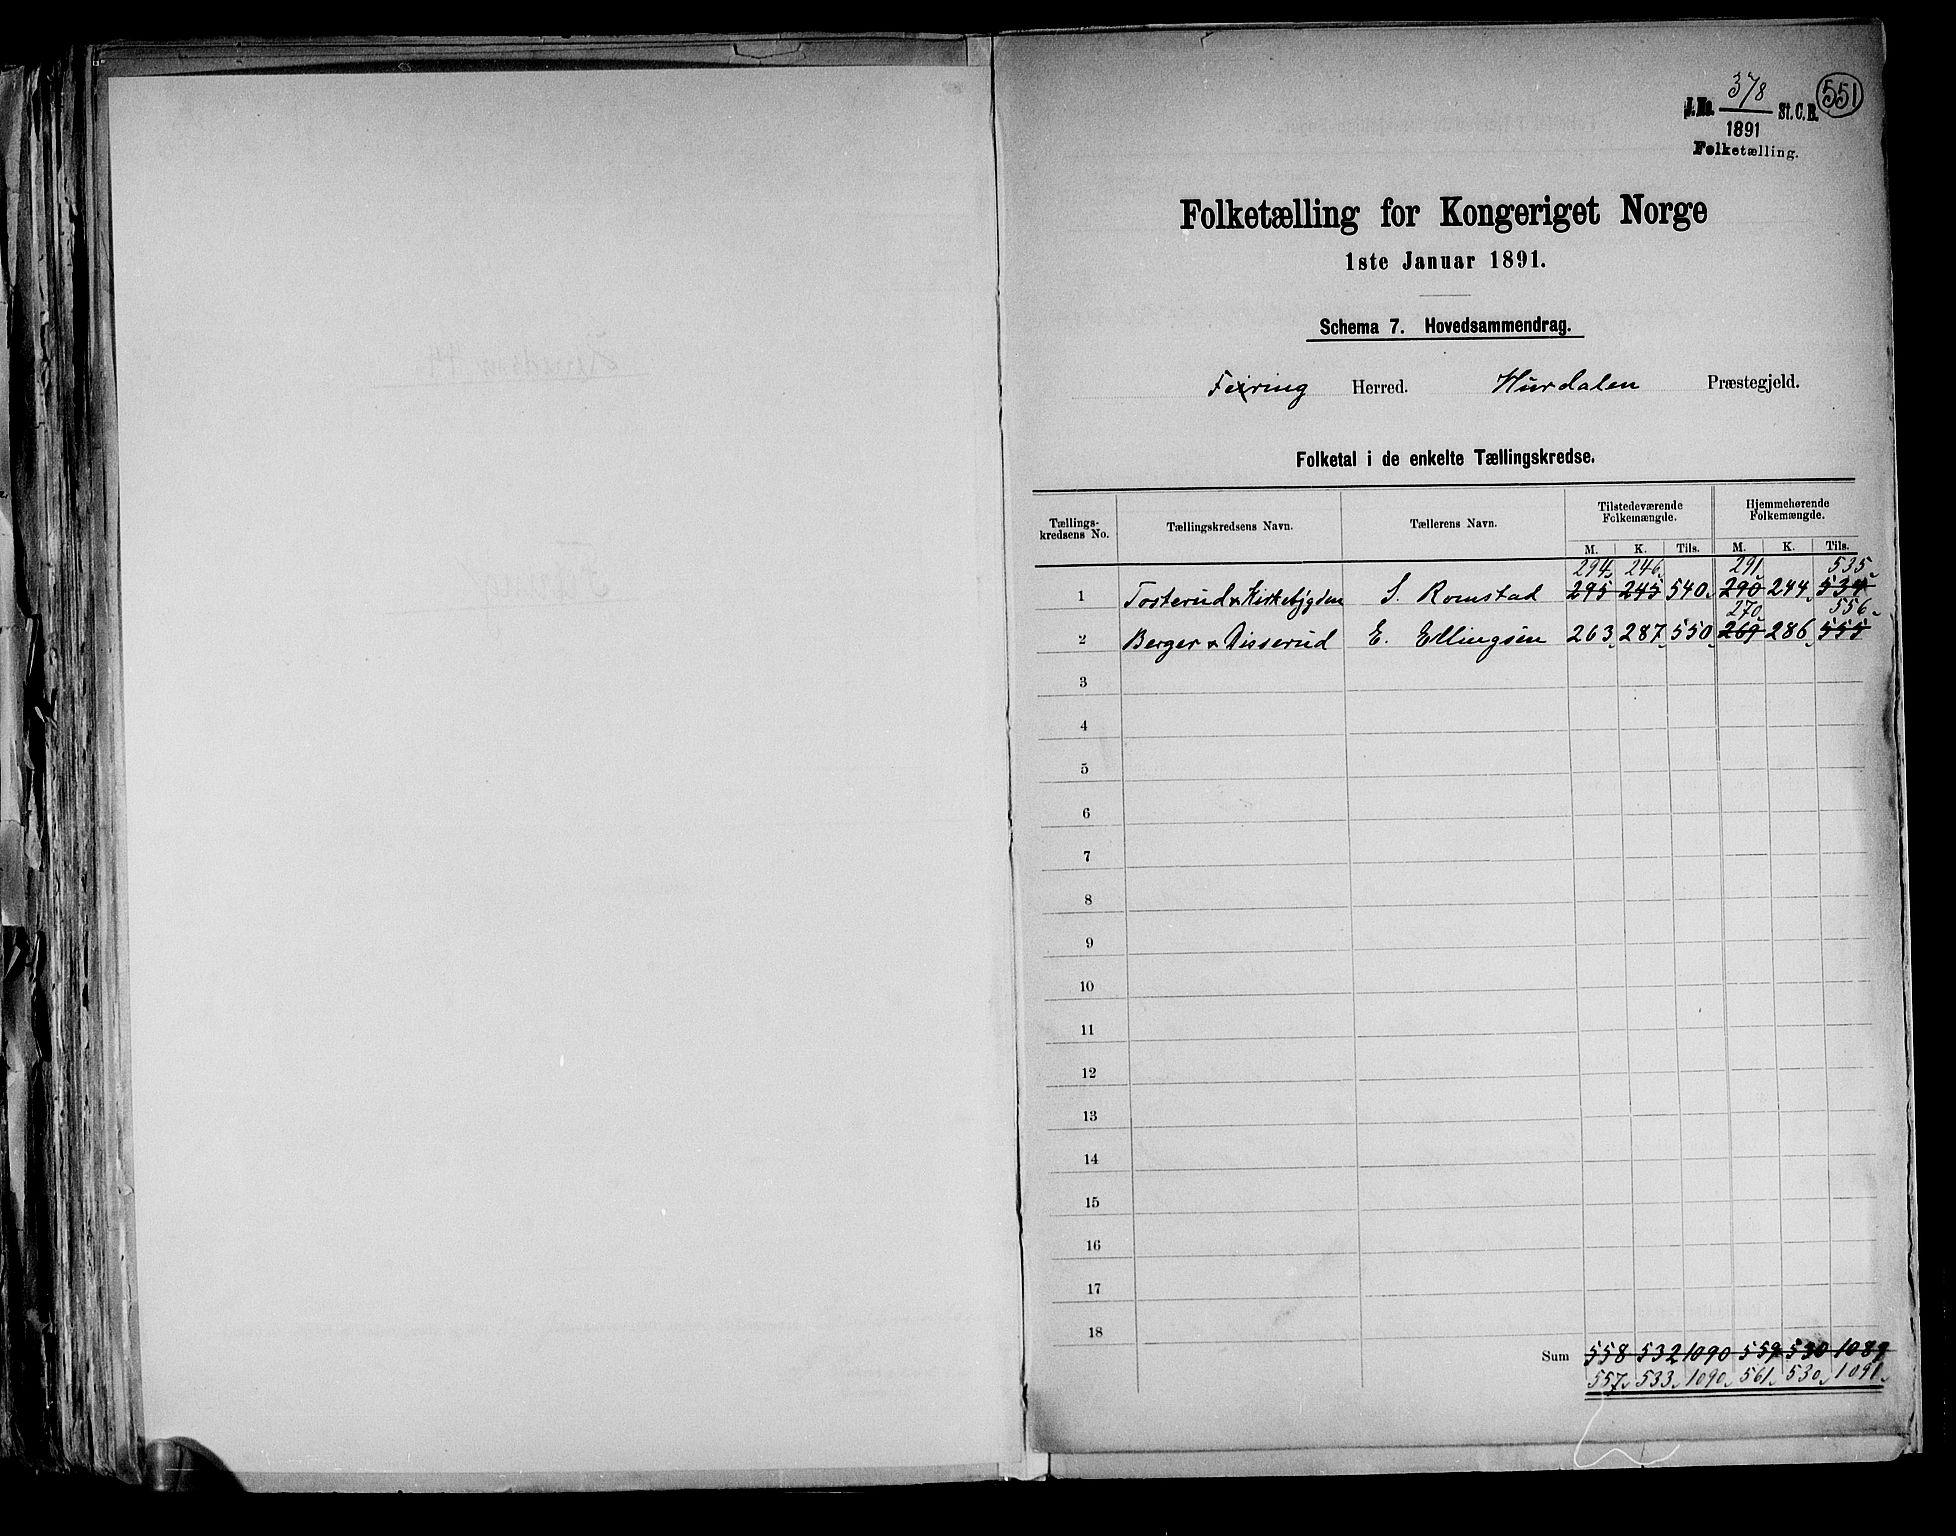 378
J.No. St. C. B. 551
1891
Folketælling.
Folketælling for Kongeriget Norge
1ste Januar 1891.
Schema 7. Hovedsammendrag.
Feiring Herred. Hurdalen Præstegjeld.
Folketal i de enkelte Tællingskredse.
Tællings-kredsens No. Tællingskredsens Navn. Tællerens Navn. Tilstedeværende Folkemængde. Hjemmehørende Folkemængde.
M. K. Tils. M. K. Tils.
294 246 291 535
1 Torterud & Kirkebygden S. Romstad 295 245 540 290 244 534
270 556
2 Berger & Disserud E. Ellingsen 263 287 550 269 286 555
3
4
5
6
7
8
9
10
11
12
13
14
15
16
17
18
Sum 558 532 1090 559 530 1089
557 533 1090 561 530 1091